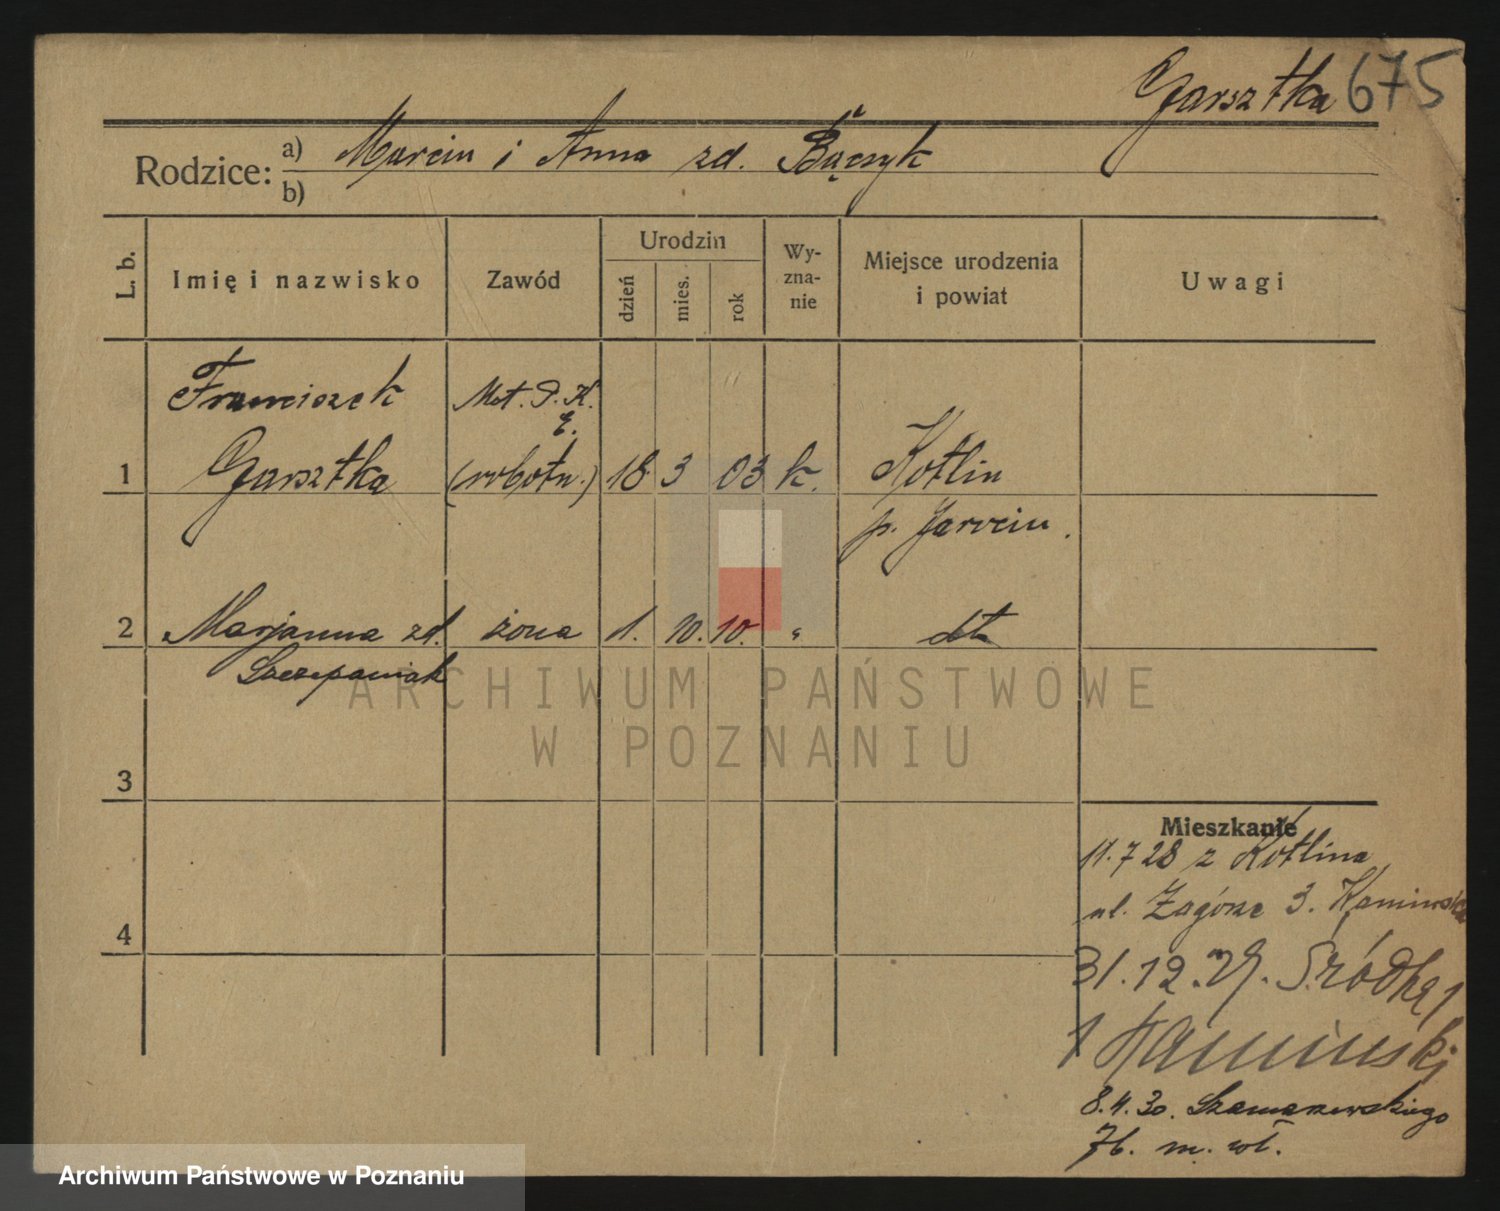 Garsztka 675
Rodzice: a) Marcin i Anna zd. Bączyk
b)
L. b.
Imię i nazwisko
Zawód
Urodzin
dzień
mies.
rok
Wy-
zna-
nie
Miejsce urodzenia
i powiat
Uwagi
Franciszek Mot. P. K.
E.
1 Garsztka (robotn.) 18 3 03 k. Kotlin
p. Jarocin.
2 Marjanna zd. żona 1. 10. 10. " dto
Szczepaniak
ARCHIWUM PAŃSTWOWE
W POZNANIU
3
4
Mieszkanie
11.7 28 z Kotlina
ul. Zagórze 3. Kaminska
31.12.29. Śródka 1
Kaminski
8.4.30. Szamarzewskiego
7b. m. wł.
Archiwum Państwowe w Poznaniu